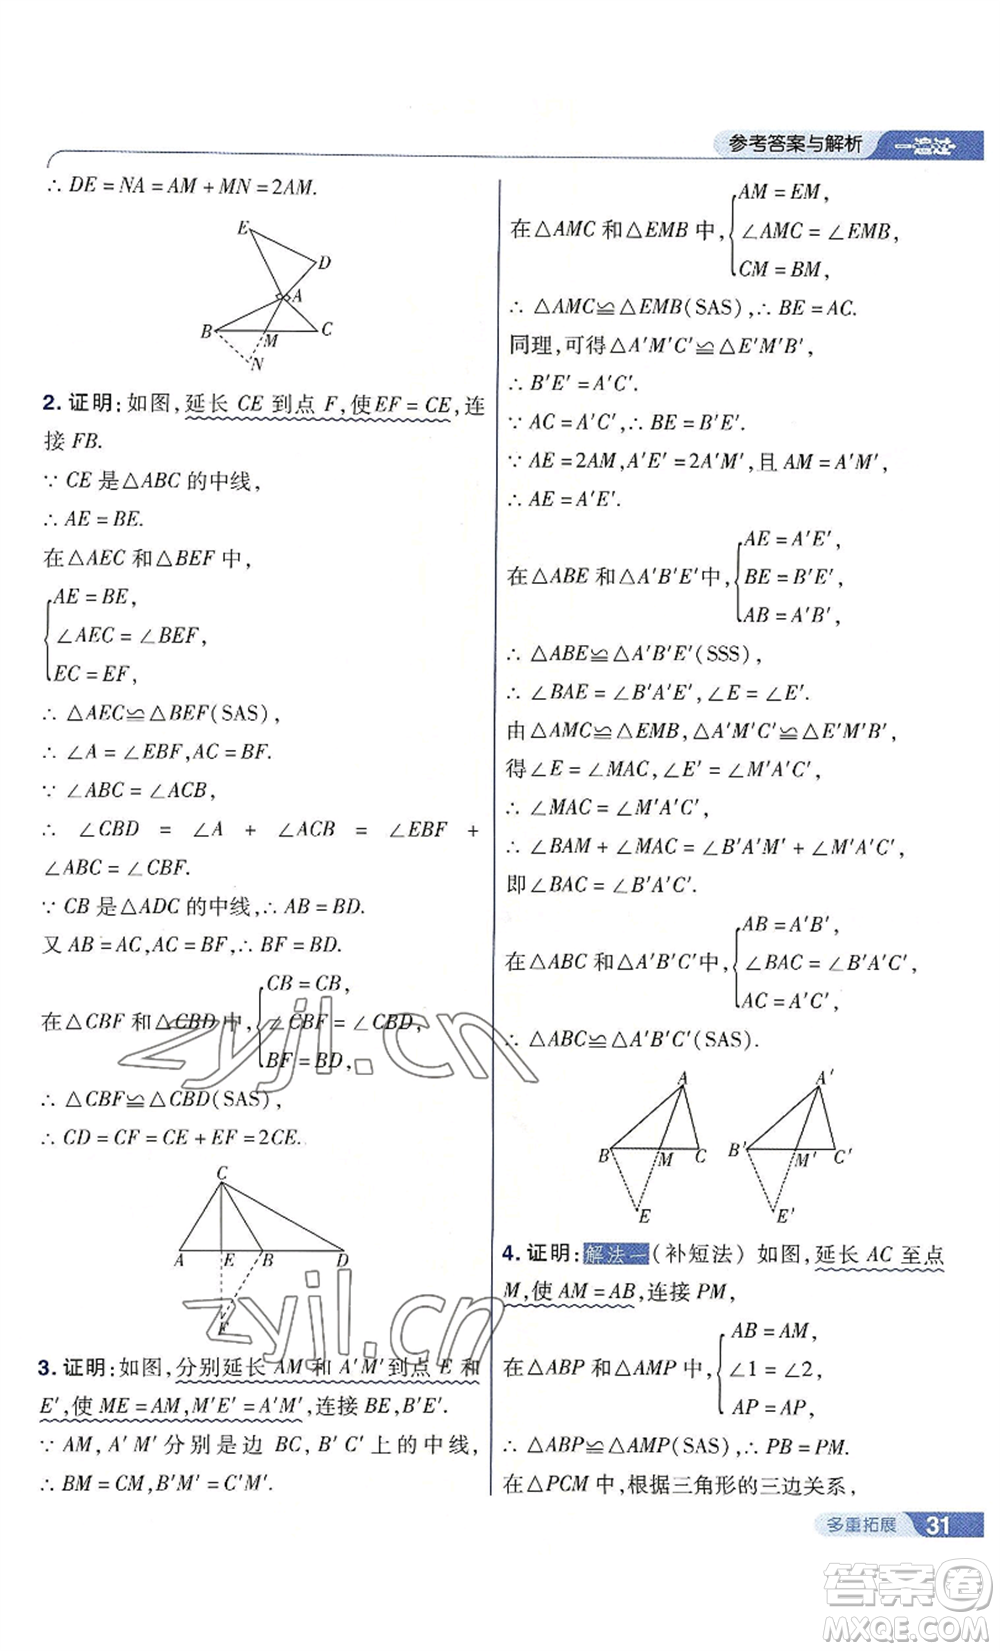 参考答案与解析 一遍过
∴ DE = NA = AM + MN = 2AM.
E
D
A
B M C
N
2. 证明：如图，延长 CE 到点 F，使 EF = CE，连
接 FB.
∵ CE 是△ABC 的中线，
∴ AE = BE.
在△AEC 和△BEF 中，
AE = BE,
∠AEC = ∠BEF,
EC = EF,
∴ △AEC≌△BEF(SAS)，
∴ ∠A = ∠EBF, AC = BF.
∵ ∠ABC = ∠ACB,
∴ ∠CBD = ∠A + ∠ACB = ∠EBF +
∠ABC = ∠CBF.
∵ CB 是△ADC 的中线，∴ AB = BD.
又 AB = AC, AC = BF, ∴ BF = BD.
在△CBF 和△CBD 中，
CB = CB,
∠CBF = ∠CBD,
BF = BD,
∴ △CBF≌△CBD(SAS)，
∴ CD = CF = CE + EF = 2CE.
C
A E B D
F
3. 证明：如图，分别延长 AM 和 A′M′到点 E 和
E′，使 ME = AM, M′E′ = A′M′，连接 BE, B′E′.
∵ AM, A′M′分别是边 BC, B′C′上的中线，
∴ BM = CM, B′M′ = C′M′.
在△AMC 和△EMB 中，
AM = EM,
∠AMC = ∠EMB,
CM = BM,
∴ △AMC≌△EMB(SAS)，∴ BE = AC.
同理，可得△A′M′C′≌△E′M′B′，
∴ B′E′ = A′C′.
∵ AC = A′C′, ∴ BE = B′E′.
∵ AE = 2AM, A′E′ = 2A′M′，且 AM = A′M′，
∴ AE = A′E′.
在△ABE 和△A′B′E′中，
AE = A′E′,
BE = B′E′,
AB = A′B′,
∴ △ABE≌△A′B′E′(SSS)，
∴ ∠BAE = ∠B′A′E′, ∠E = ∠E′.
由△AMC≌△EMB, △A′M′C′≌△E′M′B′，
得∠E = ∠MAC, ∠E′ = ∠M′A′C′，
∴ ∠MAC = ∠M′A′C′，
∴ ∠BAM + ∠MAC = ∠B′A′M′ + ∠M′A′C′，
即∠BAC = ∠B′A′C′.
在△ABC 和△A′B′C′中，
AB = A′B′,
∠BAC = ∠B′A′C′,
AC = A′C′,
∴ △ABC≌△A′B′C′(SAS).
A A′
B M C B′ M′ C′
E E′
4. 证明：解法一（补短法）如图，延长 AC 至点
M，使 AM = AB，连接 PM，
在△ABP 和△AMP 中，
AB = AM,
∠1 = ∠2,
AP = AP,
∴ △ABP≌△AMP(SAS)，∴ PB = PM.
在△PCM 中，根据三角形的三边关系，
多重拓展 31
zyjl.cn
zyjl.cn
答案卷
MXQE.COM